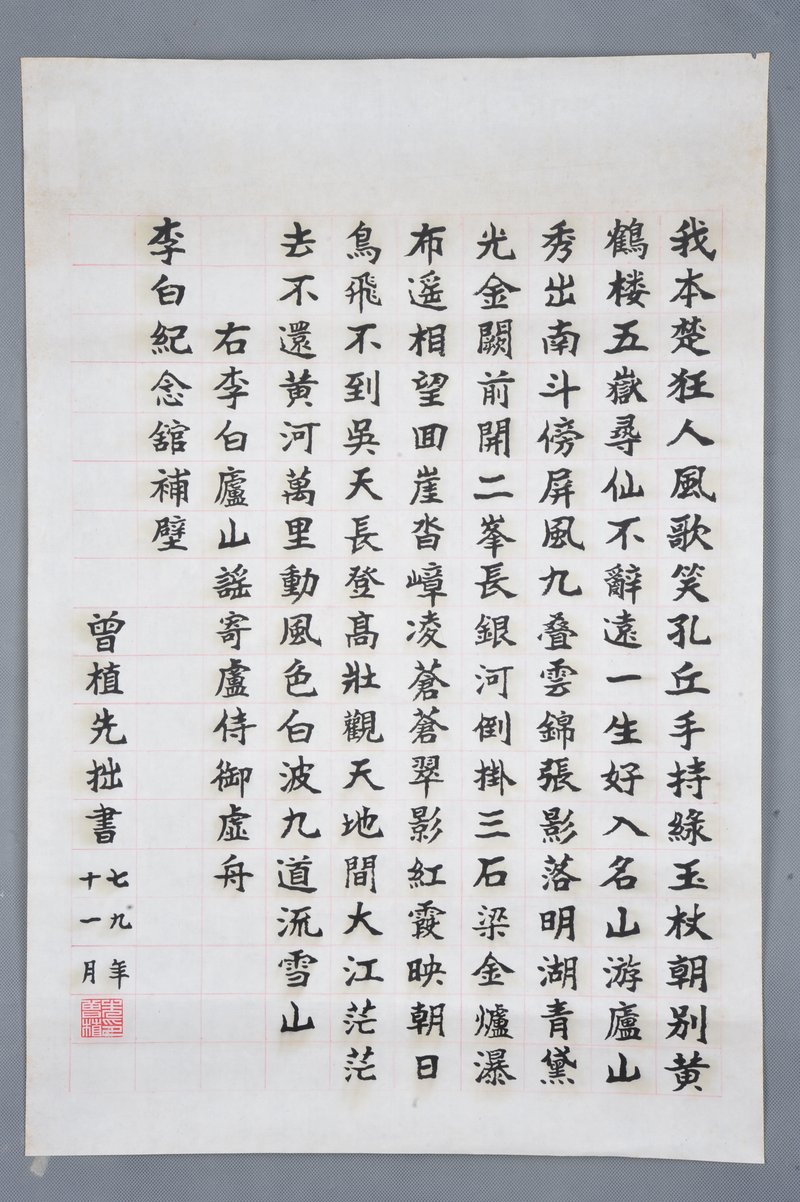 我本楚狂人風歌笑孔丘手持綠玉杖朝別黄
鶴楼五嶽尋仙不辭遠一生好入名山游廬山
秀出南斗傍屏風九叠雲錦張影落明湖青黛
光金闕前開二峯長銀河倒掛三石梁金爐瀑
布遥相望回崖沓嶂凌蒼蒼翠影紅霞映朝日
鳥飛不到吳天長登髙壯觀天地間大江茫茫
去不還黄河萬里動風色白波九道流雪山
右李白廬山謡寄盧侍御虚舟
李白紀念舘補壁
曾植先拙書
七九年
十一月